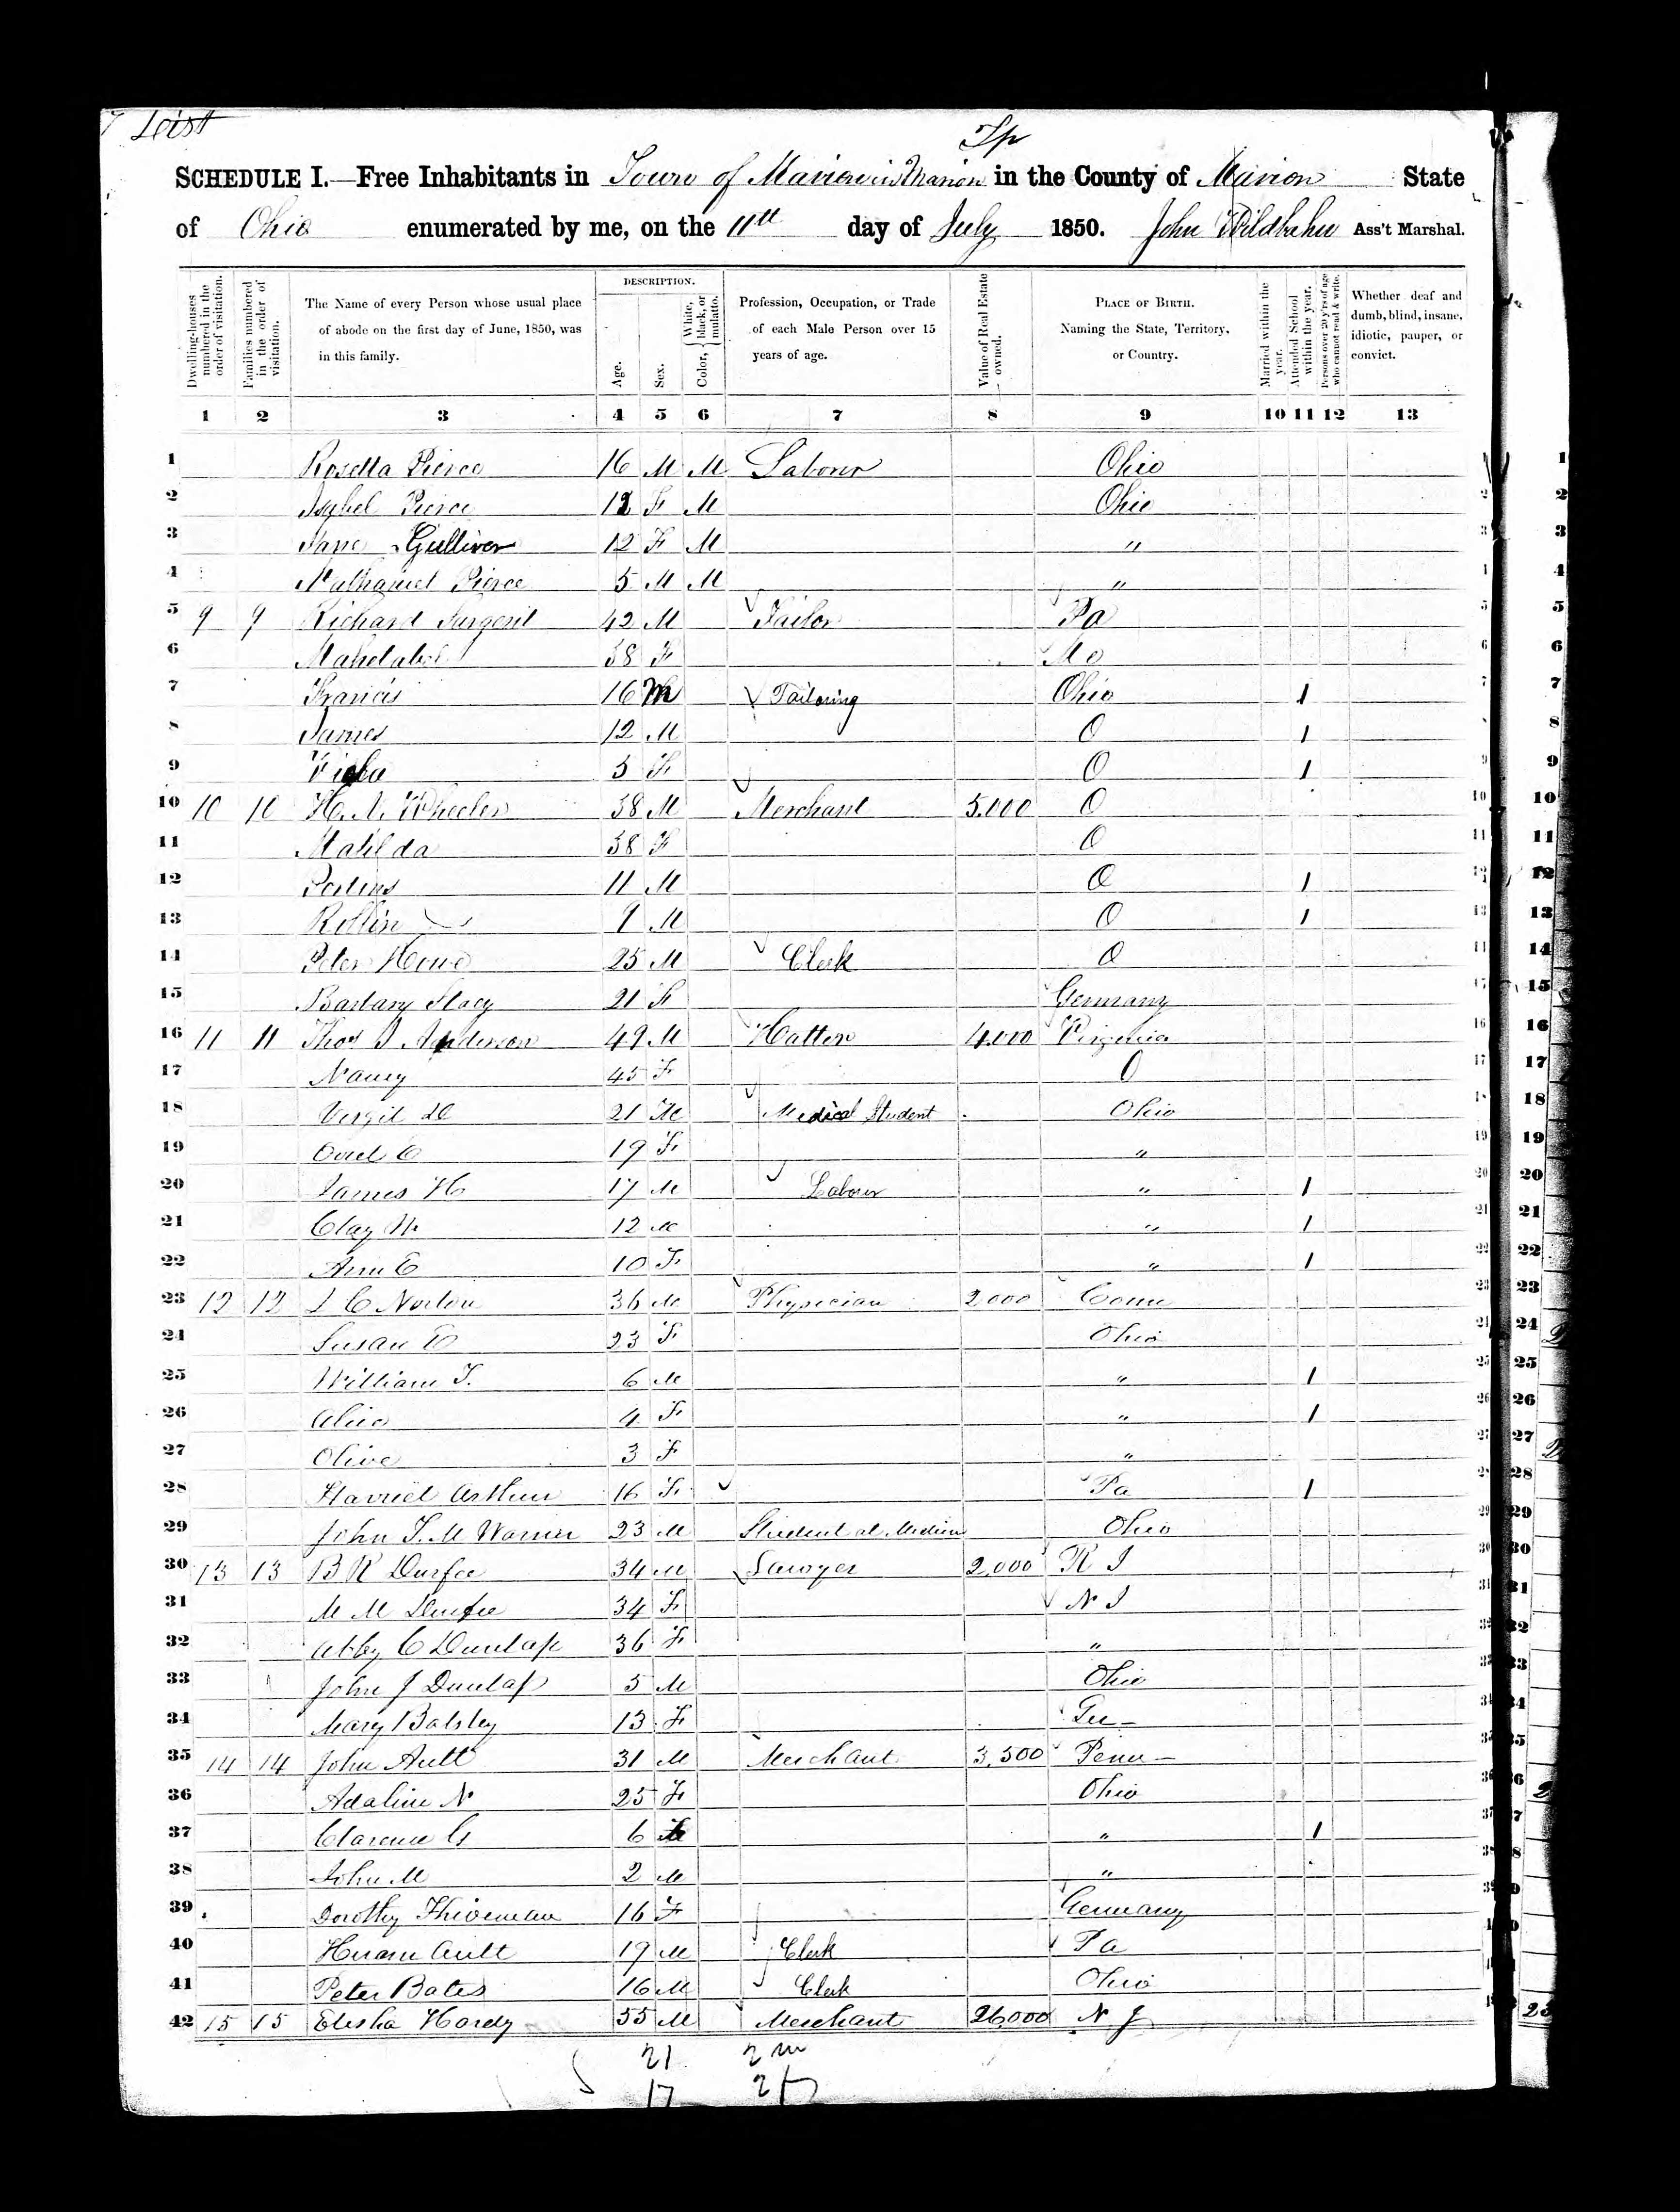 Leist
Tp
SCHEDULE I.—Free Inhabitants in Town of Marion in Marion in the County of Marion State
of Ohio enumerated by me, on the 11th day of July 1850. John Wildbahn Ass't Marshal.
Dwelling-houses numbered in the order of visitation.
Families numbered in the order of visitation.
The Name of every Person whose usual place of abode on the first day of June, 1850, was in this family.
DESCRIPTION.
Age.
Sex.
Color, { White, black, or mulatto.
Profession, Occupation, or Trade of each Male Person over 15 years of age.
Value of Real Estate owned.
PLACE OF BIRTH. Naming the State, Territory, or Country.
Married within the year.
Attended School within the year.
Persons over 20 y'rs of age who cannot read & write.
Whether deaf and dumb, blind, insane, idiotic, pauper, or convict.
1 2 3 4 5 6 7 8 9 10 11 12 13
1 Rosetta Pierce 16 M M Labourer Ohio 1
2 Isybel Pierce 12 F M Ohio 2
3 Jane Gulliver 12 F M " 3
4 Nathaniel Pierce 5 M M " 4
5 9 9 Richard Sargent 42 M Tailor Pa 5
6 Mahetabel 38 F 6
7 Francis 16 M Tailoring Ohio 1 7
8 James 12 M O 1 8
9 5 F O 1 9
10 10 10 H. A. Wheeler 38 M Merchant 5.000 O 10
11 Matilda 38 F O 11
12 Perkins 11 M O 1 12
13 Rollin 9 M O 1 13
14 Peter Howe 25 M Clerk O 14
15 Barbary Stacy 21 F Germany 15
16 11 11 Thos J Anderson 49 M Hatter 4.000 Virginia 16
17 Nancy 45 F O 17
18 Virgil D 21 M Medical Student Ohio 18
19 Ovid C 19 F " 19
20 James H 17 M Labourer " 1 20
21 Clay M 12 M " 1 21
22 Ann E 10 F " 1 22
23 12 12 I C Norton 36 M Physician 2000 Conn 23
24 Susan E 23 F Ohio 24
25 William T. 6 M " 1 25
26 Alice 4 F " 1 26
27 Olive 3 F " 27
28 Harriet Arthur 16 F Pa 1 28
29 John T. M Warner 23 M Student at Medicine Ohio 29
30 13 13 B R Durfee 34 M Lawyer 2,000 R I 30
31 M M Durfee 34 F N J 31
32 Abby C Dunlap 36 F " 32
33 John J Dunlap 5 M Ohio 33
34 Mary Batsley 13 F Ger- 34
35 14 14 John Ault 31 M Merchant 3,500 Penn- 35
36 Adaline N 25 F Ohio 36
37 Clarence G 6 " 1 37
38 John M 2 M " 38
39 Dorothy Thiveman 16 F Germany 39
40 Hiram Ault 19 M Clerk Pa 40
41 Peter Bates 16 M Clerk Ohio 41
42 15 15 Elisha Hardy 55 M Merchant 26,000 N J
21 2 m
17 2 f